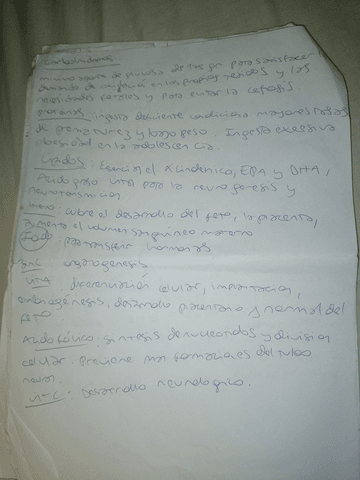 Carbohidratos:
mínimo aporte de glucosa de 175 gr para satisfacer
demanda de en los propios tejidos y las
necesidades fetales y para evitar la cetosis.
Proteínas: ingesta deficiente condiciona mayores tasas
de prematurez y bajo peso. Ingesta excesiva
obesidad en la adolescencia.
Lípidos: Esencial el α linolenico, EPA y DHA,
Acido graso vital para la neurogenesis y
neurotransmision
Hierro: cubre el desarrollo del feto, la placenta,
aumenta el volumen sanguineo materno
Iodo: Para transferir hormonas
Zinc organogenesis
Vit A diferenciación celular, implantación,
embriogénesis, desarrollo placentario y normal del
feto
Acido fólico: síntesis de nucleotidos y division
celular. Previene mal formaciones del tubo
neural.
Vit C: Desarrollo neurologico.